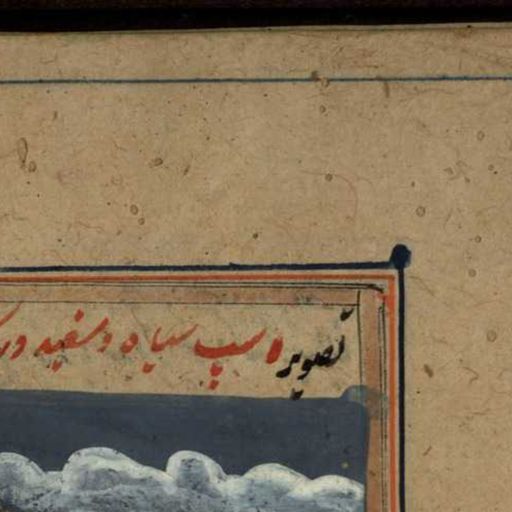 تصویر اسپ سیاه و سفید در